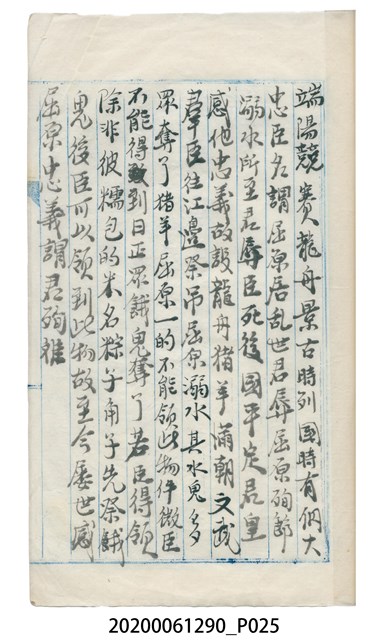 端陽競賽龍舟景古時列國時有個大
忠臣名謂屈原居乱世君辱屈原殉節
溺水所至君辱臣死後國平定君皇
感他忠義故設龍舟猪羊滿朝文武
羣臣往江邊祭吊屈原溺水其水鬼多
眾奪了猪羊屈原一的不能領此物件微臣
不能得到日正眾餓鬼奪了若臣得領
除非彼糯包的米名粽子角子先祭餓
鬼後臣可以領到此物故至今歷世感
屈原忠義謂君殉難
20200061290_P025